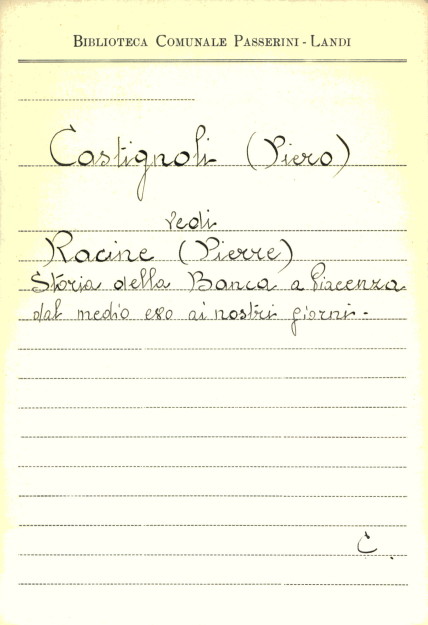 BIBLIOTECA COMUNALE PASSERINI - LANDI
Castignoli (Piero)
vedi
Racine (Pierre)
Storia della Banca a Piacenza
dal medio evo ai nostri giorni -
C.